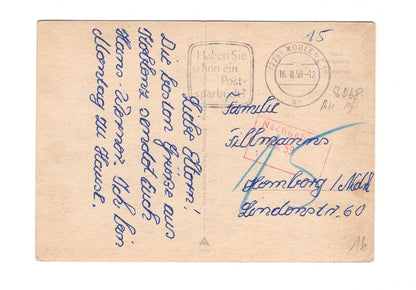 Liebe Eltern!
Die besten Grüße aus
Koblenz sendet Euch
Hans-Werner. Ich bin
Montag zu Hause.
Haben Sie
schon ein
Post-
sparbuch?
KOBLENZ
16.8.58-12
15
Familie
Tillmanns
Homberg/Ndrh
Lindenstr. 60
Nachgebühr
15